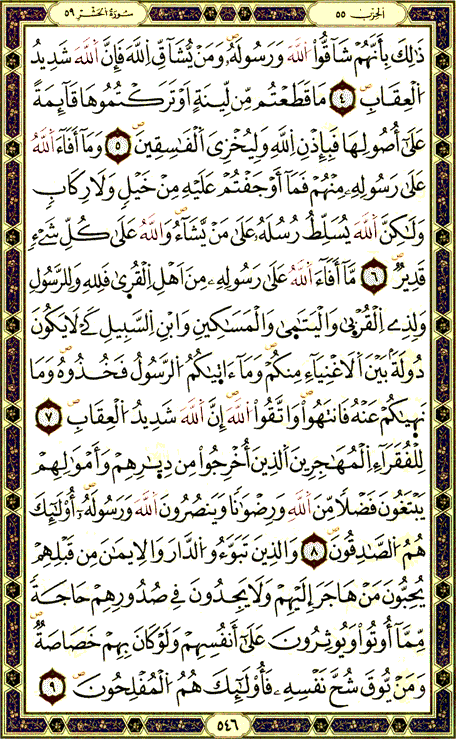 الحزب ٥٥
سورة الحشر ٥٩
ذَٰلِكَ بِأَنَّهُمْ شَاقُّوا اللَّهَ وَرَسُولَهُ وَمَنْ يُشَاقِّ اللَّهَ فَإِنَّ اللَّهَ شَدِيدُ
الْعِقَابِ ٤ مَا قَطَعْتُمْ مِنْ لِينَةٍ أَوْ تَرَكْتُمُوهَا قَائِمَةً
عَلَىٰ أُصُولِهَا فَبِإِذْنِ اللَّهِ وَلِيُخْزِيَ الْفَاسِقِينَ ٥ وَمَا أَفَاءَ اللَّهُ
عَلَىٰ رَسُولِهِ مِنْهُمْ فَمَا أَوْجَفْتُمْ عَلَيْهِ مِنْ خَيْلٍ وَلَا رِكَابٍ
وَلَٰكِنَّ اللَّهَ يُسَلِّطُ رُسُلَهُ عَلَىٰ مَنْ يَشَاءُ وَاللَّهُ عَلَىٰ كُلِّ شَيْءٍ
قَدِيرٌ ٦ مَا أَفَاءَ اللَّهُ عَلَىٰ رَسُولِهِ مِنْ أَهْلِ الْقُرَىٰ فَلِلَّهِ وَلِلرَّسُولِ
وَلِذِي الْقُرْبَىٰ وَالْيَتَامَىٰ وَالْمَسَاكِينِ وَابْنِ السَّبِيلِ كَيْ لَا يَكُونَ
دُولَةً بَيْنَ الْأَغْنِيَاءِ مِنْكُمْ وَمَا آتَاكُمُ الرَّسُولُ فَخُذُوهُ وَمَا
نَهَاكُمْ عَنْهُ فَانْتَهُوا وَاتَّقُوا اللَّهَ إِنَّ اللَّهَ شَدِيدُ الْعِقَابِ ٧
لِلْفُقَرَاءِ الْمُهَاجِرِينَ الَّذِينَ أُخْرِجُوا مِنْ دِيَارِهِمْ وَأَمْوَالِهِمْ
يَبْتَغُونَ فَضْلًا مِنَ اللَّهِ وَرِضْوَانًا وَيَنْصُرُونَ اللَّهَ وَرَسُولَهُ أُولَٰئِكَ
هُمُ الصَّادِقُونَ ٨ وَالَّذِينَ تَبَوَّءُوا الدَّارَ وَالْإِيمَانَ مِنْ قَبْلِهِمْ
يُحِبُّونَ مَنْ هَاجَرَ إِلَيْهِمْ وَلَا يَجِدُونَ فِي صُدُورِهِمْ حَاجَةً
مِمَّا أُوتُوا وَيُؤْثِرُونَ عَلَىٰ أَنْفُسِهِمْ وَلَوْ كَانَ بِهِمْ خَصَاصَةٌ
وَمَنْ يُوقَ شُحَّ نَفْسِهِ فَأُولَٰئِكَ هُمُ الْمُفْلِحُونَ ٩
٥٤٦